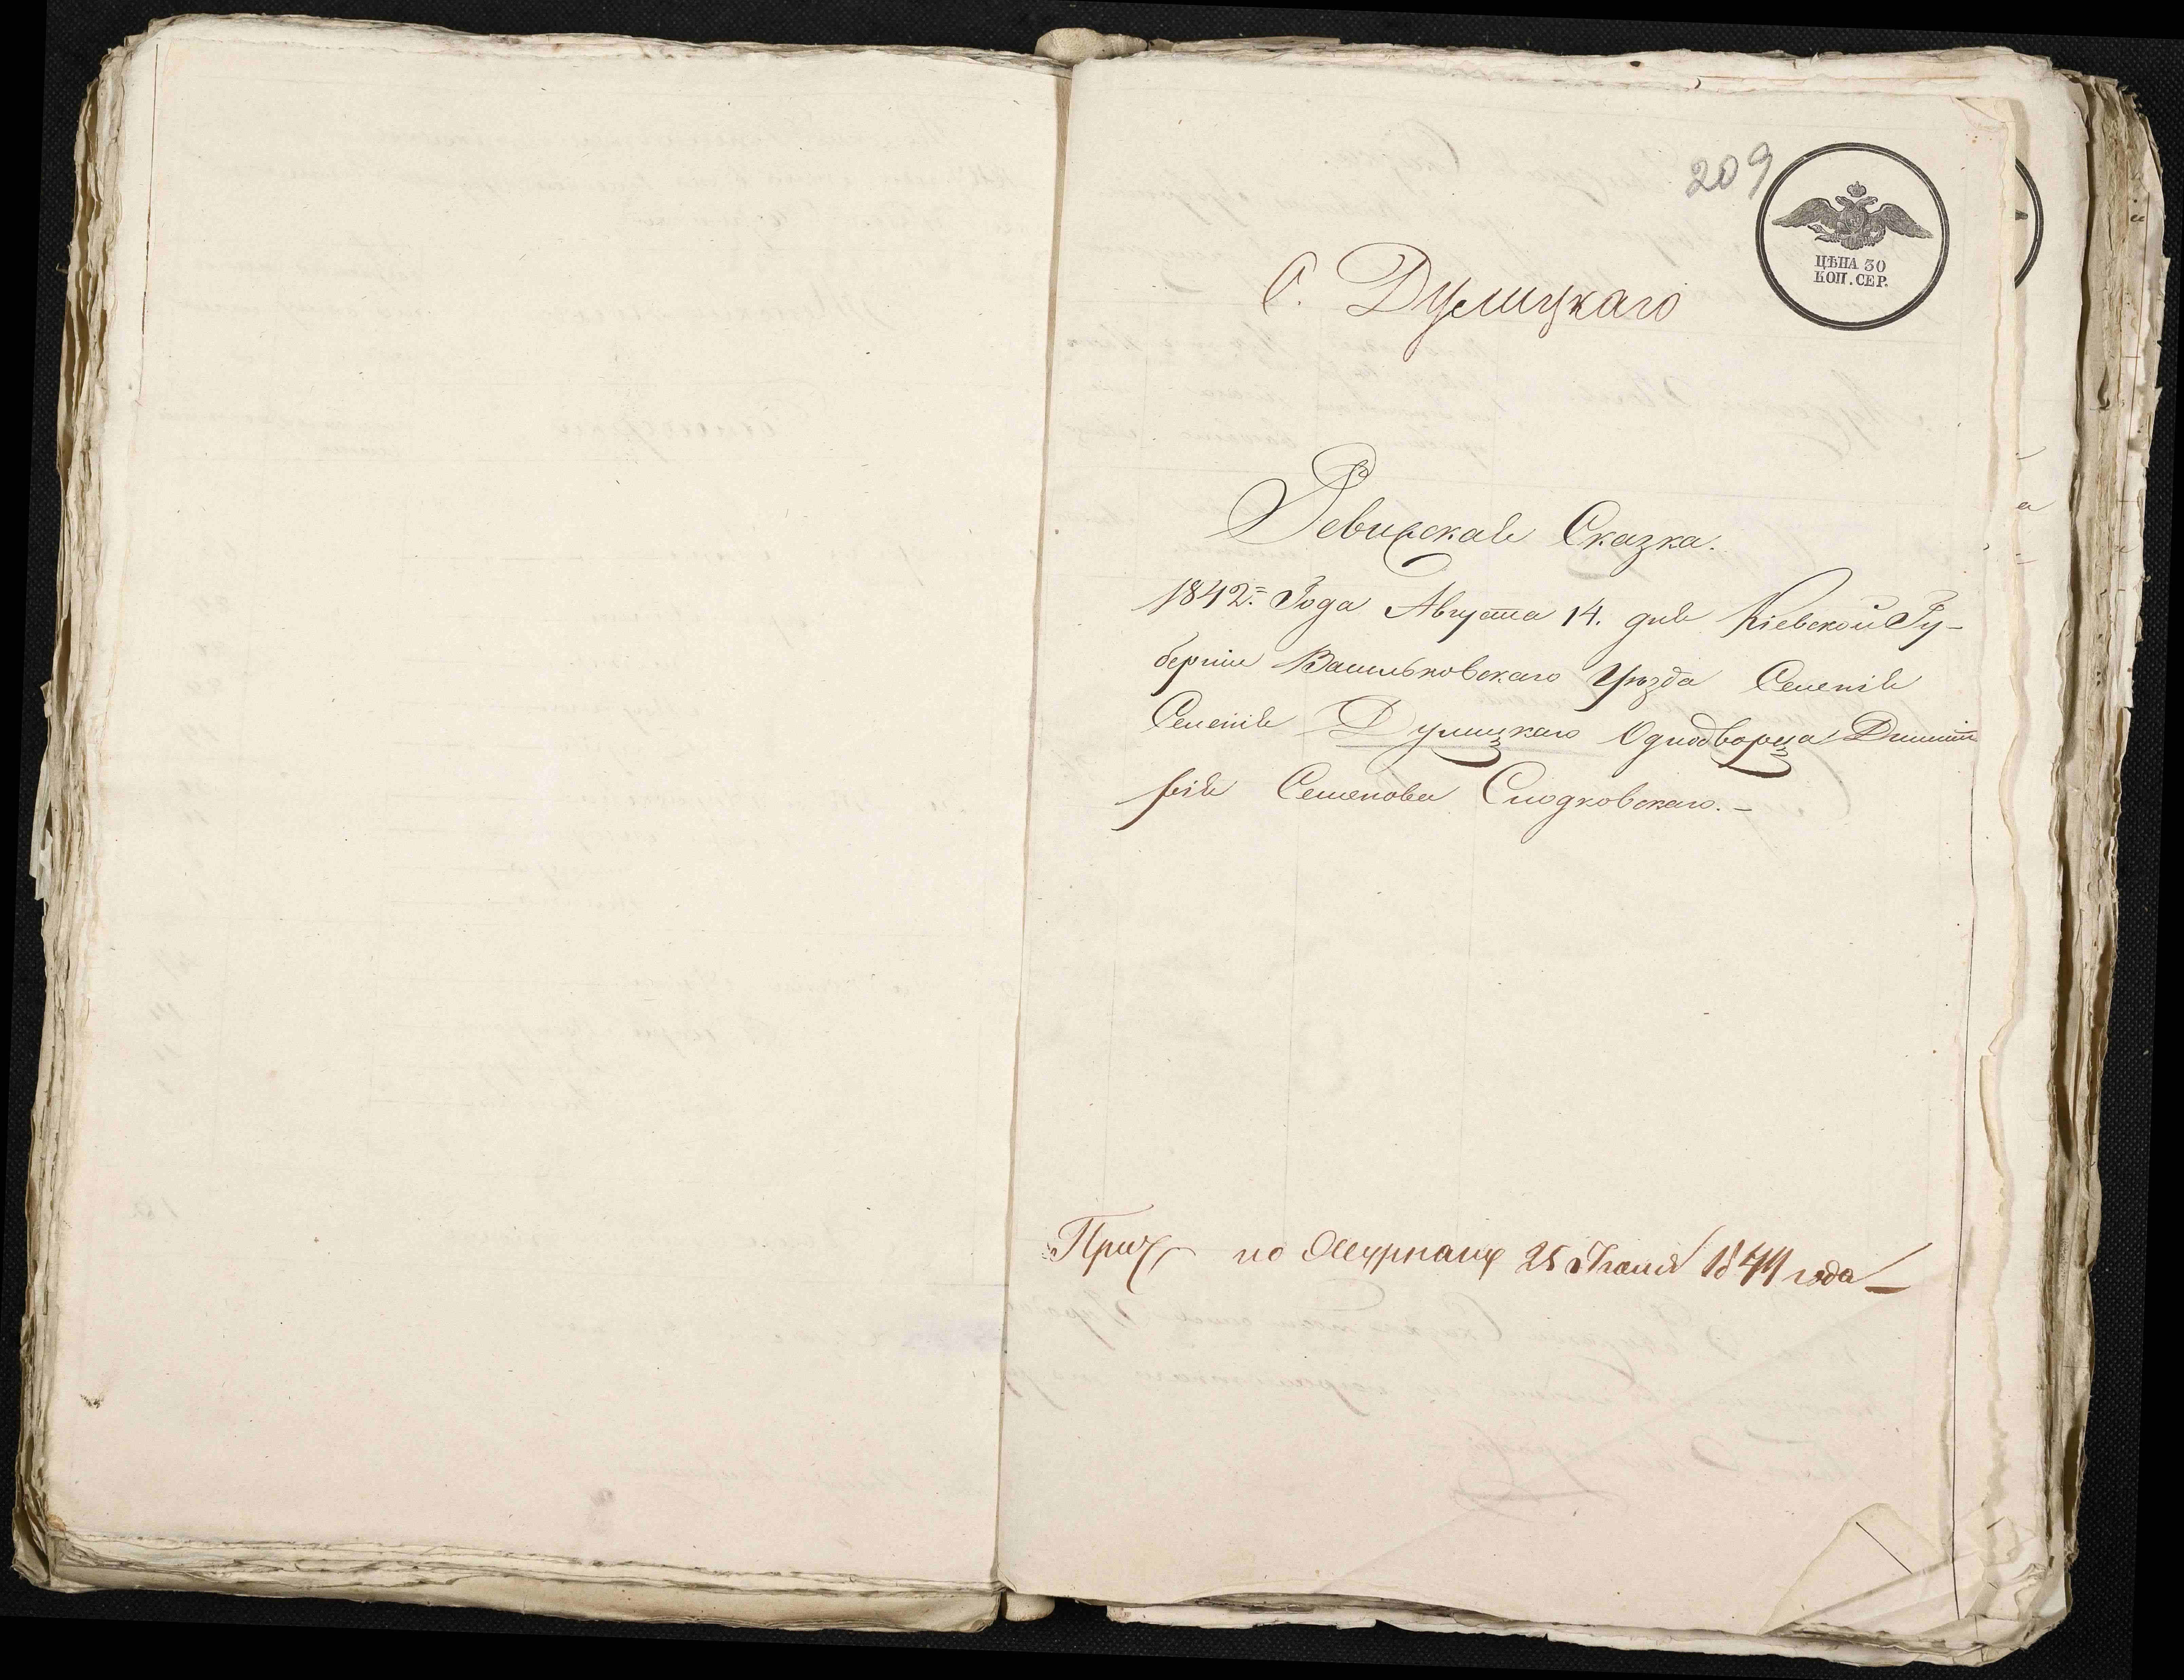 209
ЦѢНА 30
КОП. СЕР.
С. Дулицкаго
Ревизская Сказка.
1842. Года Августа 14. дня Кіевской Гу-
берніи Васильковскаго Уѣзда Селенія
Селенія Дулицкаго Однодворца Димит
рія Семенова
по Журналу 25 1844 года